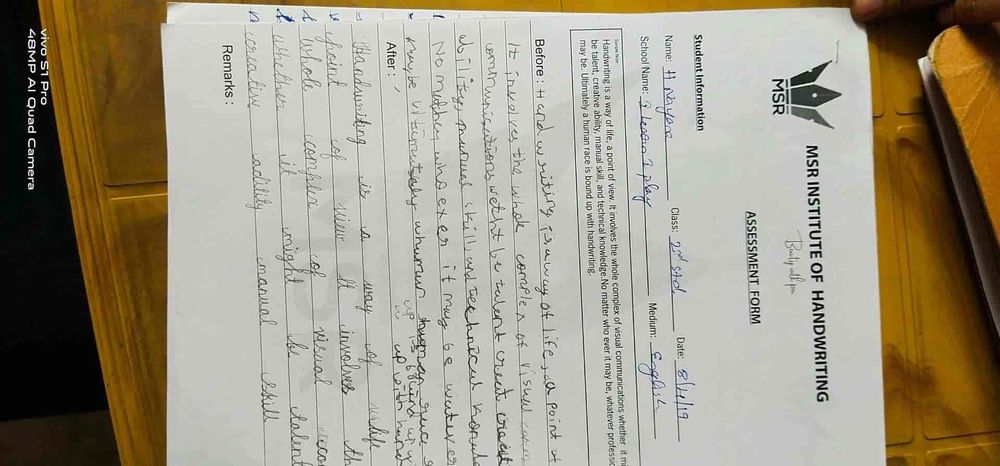 MSR
MSR INSTITUTE OF HANDWRITING
Beauty with pen
ASSESSMENT FORM
Student Information
Name: H Nayan Class: 2nd std Date: 8/4/19
School Name: I learn I play Medium: English
Handwriting is a way of life, a point of view. It involves the whole complex of visual communications whether it mi
be talent, creative ability, manual skill, and technical knowledge.No matter who ever it may be, whatever professic
may be. Ultimately a human race is bound up with handwriting.
Before : Handwriting is a way of life, a point of
It involves the whole complex of visual comm
communications wetht be talent creet creat
abilitiy, manual skill and technical knowle
No mother, who exer it may be water
maybe Ultimately human race
is bound up
up with hand
After :
Handwriting is a way of life
point of view It involves th
whole complex of visual com
whether it might be talent
creative adility manual skill
Remarks :
vivo S1 Pro
48MP AI Quad Camera